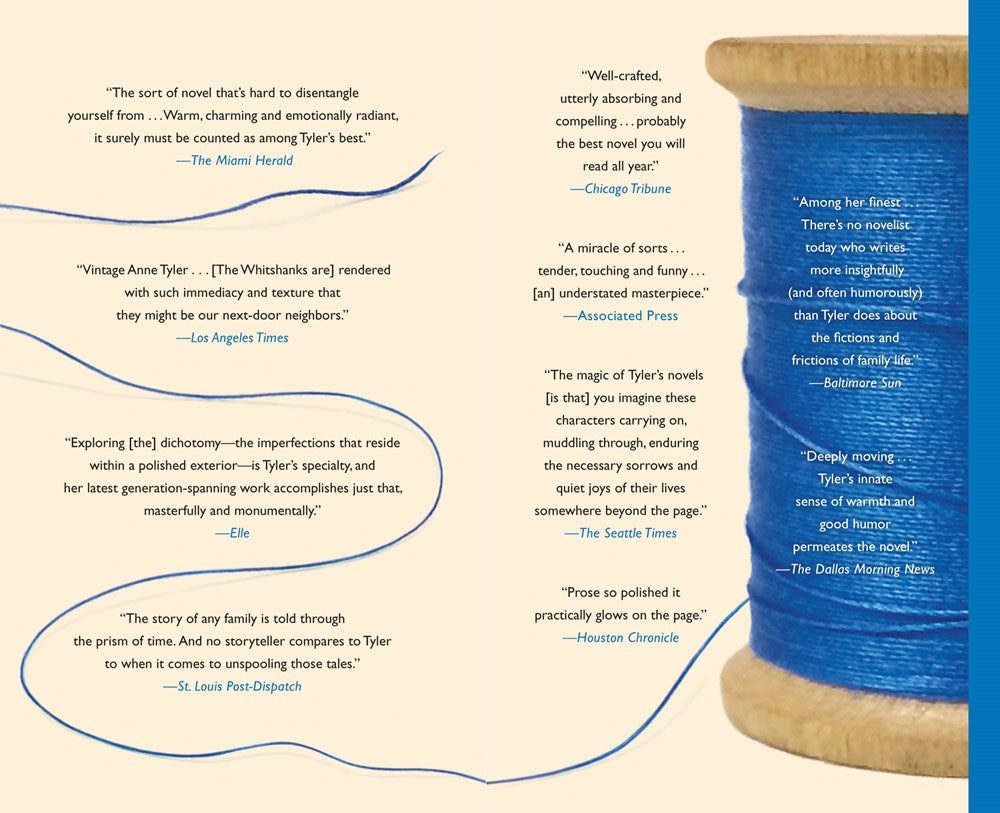 “The sort of novel that’s hard to disentangle
yourself from . . . Warm, charming and emotionally radiant,
it surely must be counted as among Tyler’s best.”
—The Miami Herald
“Vintage Anne Tyler . . . [The Whitshanks are] rendered
with such immediacy and texture that
they might be our next-door neighbors.”
—Los Angeles Times
“Exploring [the] dichotomy—the imperfections that reside
within a polished exterior—is Tyler’s specialty, and
her latest generation-spanning work accomplishes just that,
masterfully and monumentally.”
—Elle
“The story of any family is told through
the prism of time. And no storyteller compares to Tyler
to when it comes to unspooling those tales.”
—St. Louis Post-Dispatch
“Well-crafted,
utterly absorbing and
compelling . . . probably
the best novel you will
read all year.”
—Chicago Tribune
“A miracle of sorts . . .
tender, touching and funny . . .
[an] understated masterpiece.”
—Associated Press
“The magic of Tyler’s novels
[is that] you imagine these
characters carrying on,
muddling through, enduring
the necessary sorrows and
quiet joys of their lives
somewhere beyond the page.”
—The Seattle Times
“Prose so polished it
practically glows on the page.”
—Houston Chronicle
“Among her finest . . .
There’s no novelist
today who writes
more insightfully
(and often humorously)
than Tyler does about
the fictions and
frictions of family life.”
—Baltimore Sun
“Deeply moving . . .
Tyler’s innate
sense of warmth and
good humor
permeates the novel.”
—The Dallas Morning News